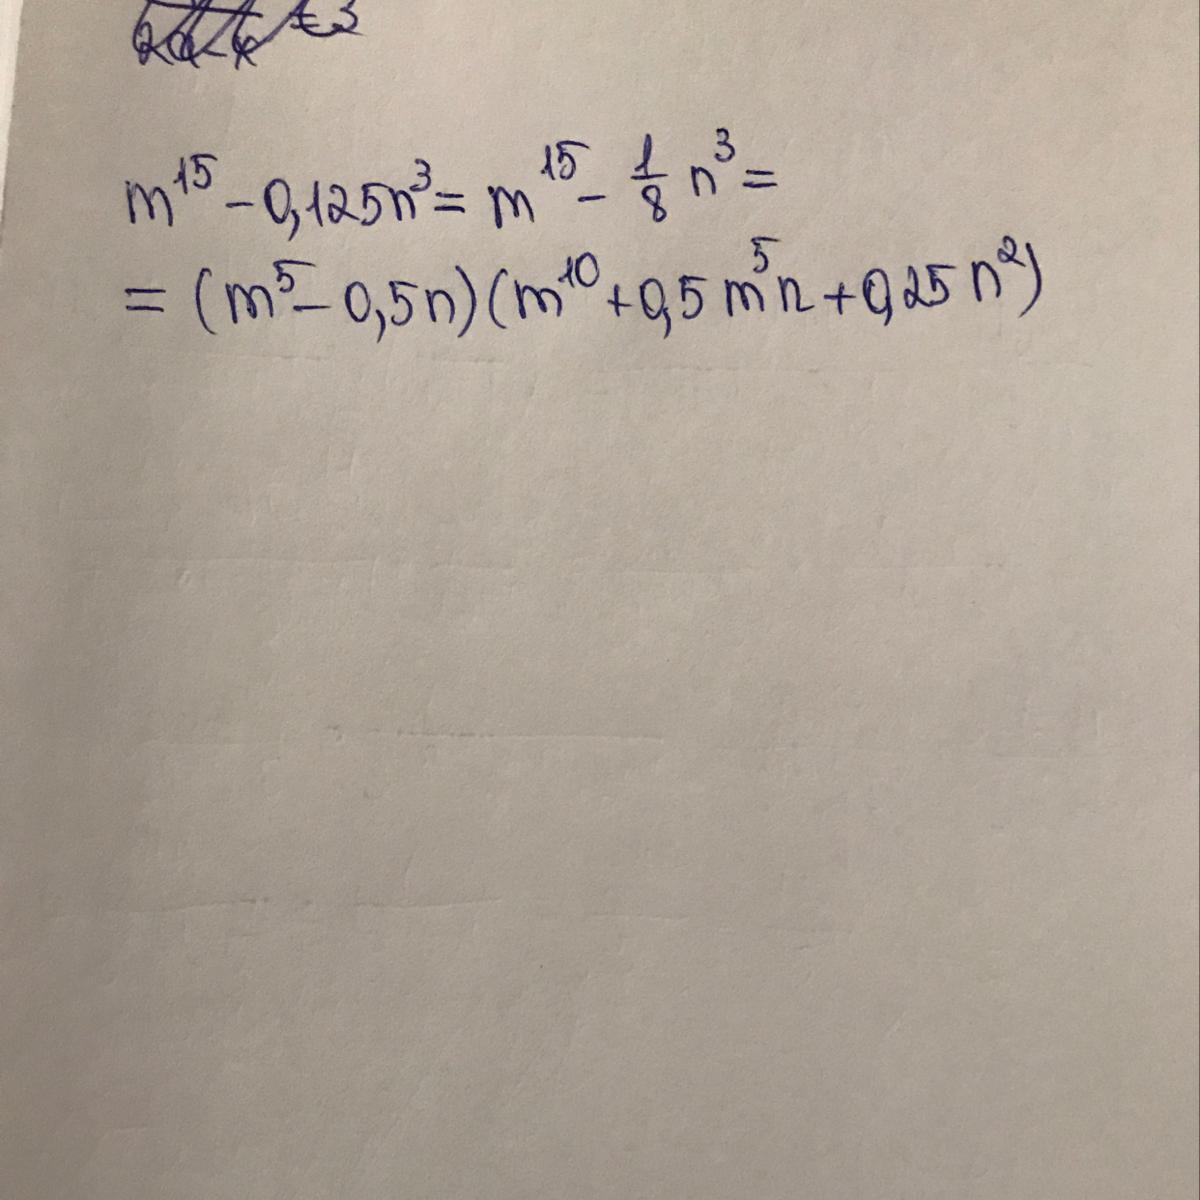 m¹⁵ - 0,125n³ = m¹⁵ - 1/8 n³ =
= (m⁵ - 0,5n)(m¹⁰ + 0,5m⁵n + 0,25n²)